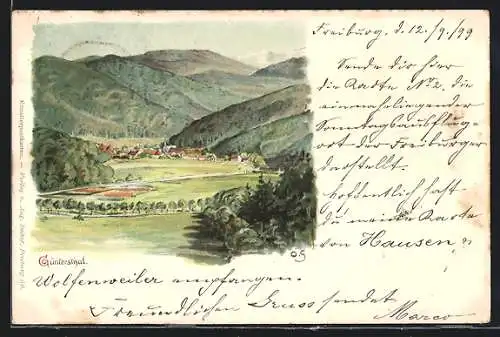 Freiburg, d. 12/9/99
Sende dir hier
die Karte No 2, die
einen naheliegender
Sonntagsausflug-
ort der Freiburger
darstellt.
Hoffentlich hast
du meine Karte
von Hausen,
Wolfenweiler empfangen.
Freundlichen Gruss sendet
Marco
Güntersthal.
Künstlerpostkarten. — Verlag v.